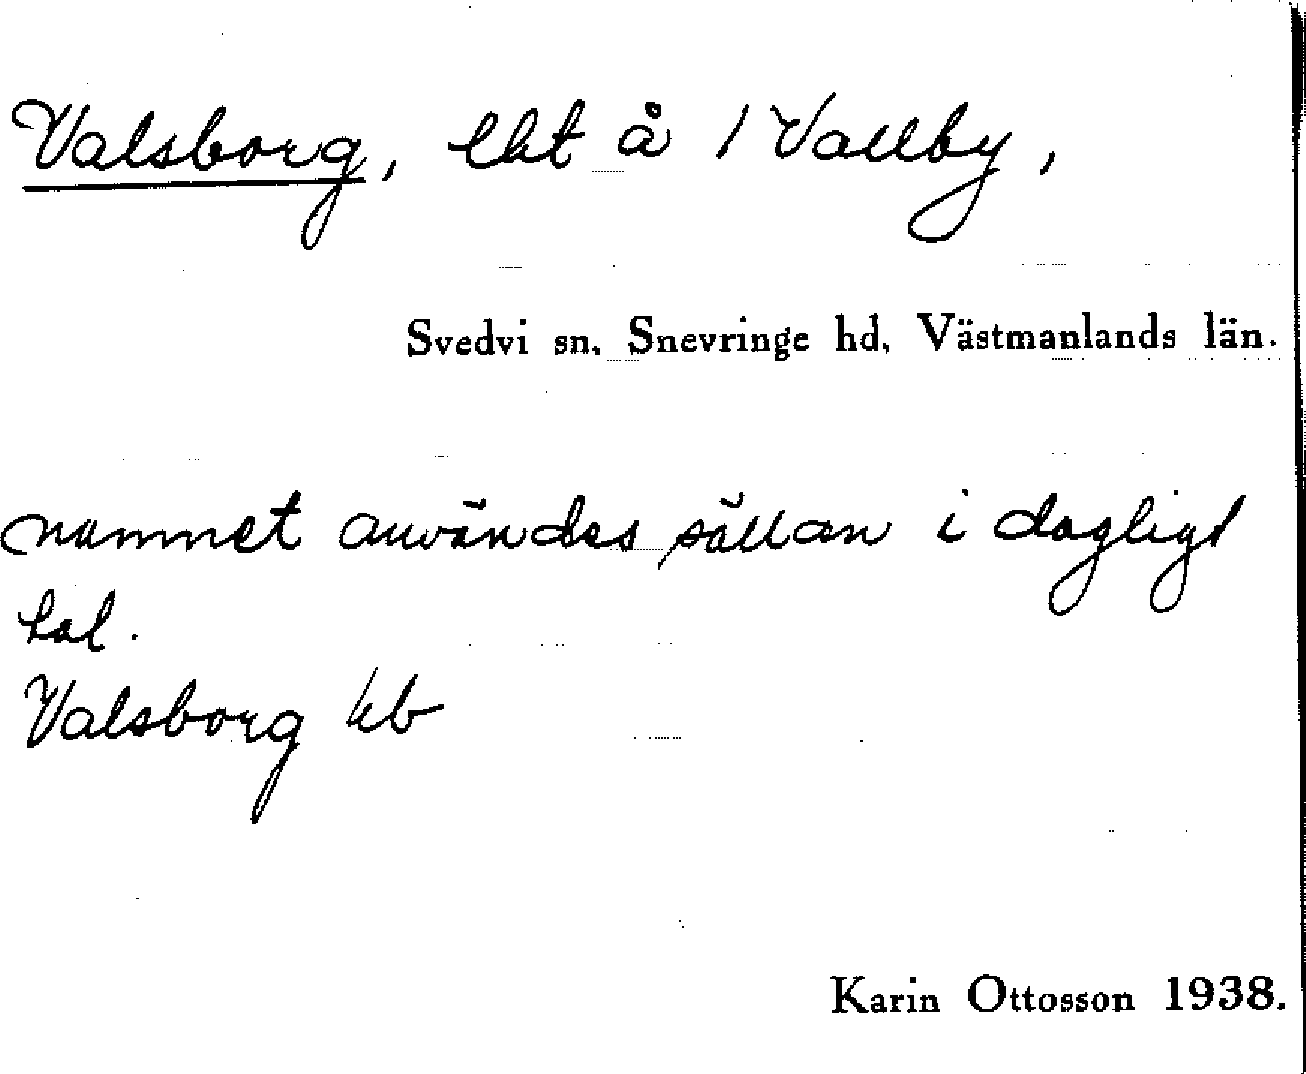 Valsborg, lht å 1 Vallby,
Svedvi sn. Snevringe hd, Västmanlands län.
namnet användes sällan i dagligt
tal.
Valsborg kb
Karin Ottosson 1938.